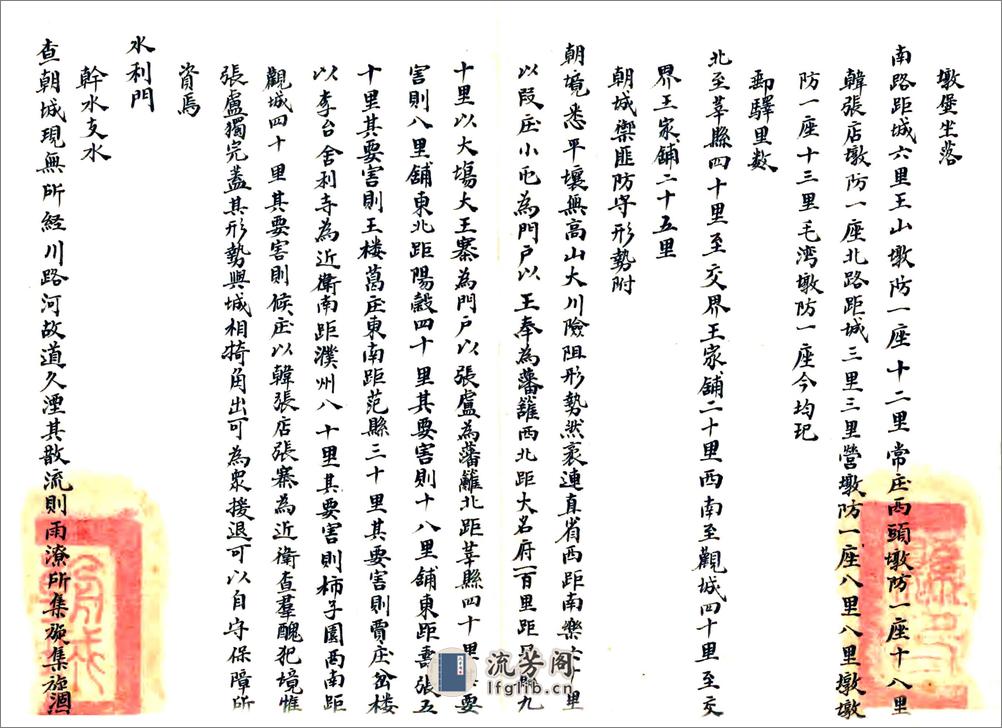 墩堡坐落
南路距城六里王山墩防一座十二里常庄西頭墩防一座十八里
韓張店墩防一座北路距城三里三里營墩防一座八里八里墩墩
防一座十三里毛湾墩防一座今均圮
郵驛里数
北至莘縣四十里至交界王家舖二十里西南至觀城四十里至交
界王家舖二十五里
朝城禦匪防守形勢附
朝境悉平壤無高山大川險阻形勢然袤連直省西距南樂六十里
以段庄小屯為門户以王奉為藩籬西北距大名府一百里距縣九
十里以大塲大王寨為門户以張盧為藩籬北距莘縣四十里其要
害則八里舖東北距陽穀四十里其要害則十八里舖東距壽張五
十里其要害則王楼葛庄東南距范縣三十里其要害則賈庄岔楼
以李台舍利寺為近衛南距濮州八十里其要害則柿子園西南距
觀城四十里其要害則候庄以韓張店張寨為近衛查羣醜犯境惟
張盧獨完蓋其形勢與城相掎角出可為衆援退可以自守保障所
資焉
水利門
幹水支水
查朝城現無所經川路河故道久湮其散流則雨潦所集旋集旋涸
流芳阁
lfglib.cn